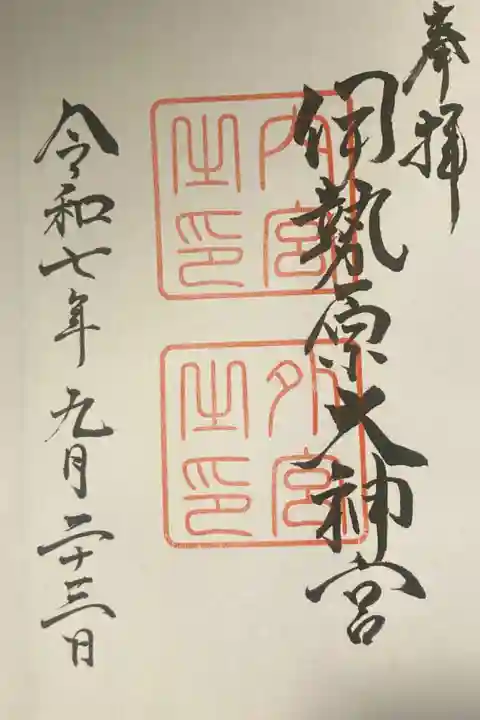 奉拝
伊勢原大神宮
内宮之印
外宮之印
令和七年九月二十三日